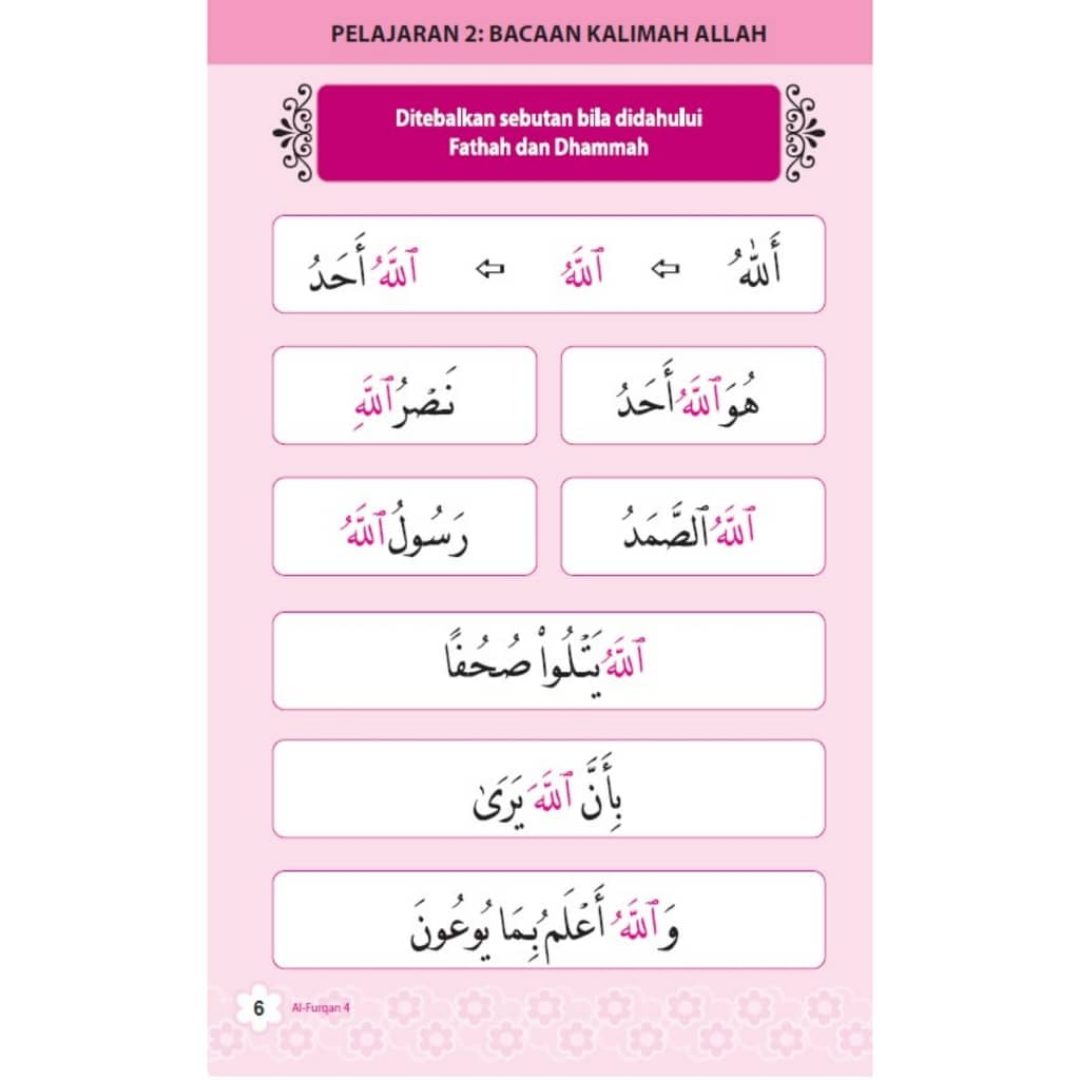 PELAJARAN 2: BACAAN KALIMAH ALLAH
Ditebalkan sebutan bila didahului
Fathah dan Dhammah
أَللّٰهُ ⇦ ٱللَّهُ ⇦ ٱللَّهُ أَحَدُ
هُوَ ٱللَّهُ أَحَدُ
نَصْرُ ٱللَّهِ
ٱللَّهُ ٱلصَّمَدُ
رَسُولُ ٱللَّهُ
ٱللَّهُ يَتْلُواْ صُحُفًا
بِأَنَّ ٱللَّهَ يَرَىٰ
وَٱللَّهُ أَعْلَمُ بِمَا يُوعُونَ
6 Al-Furqan 4